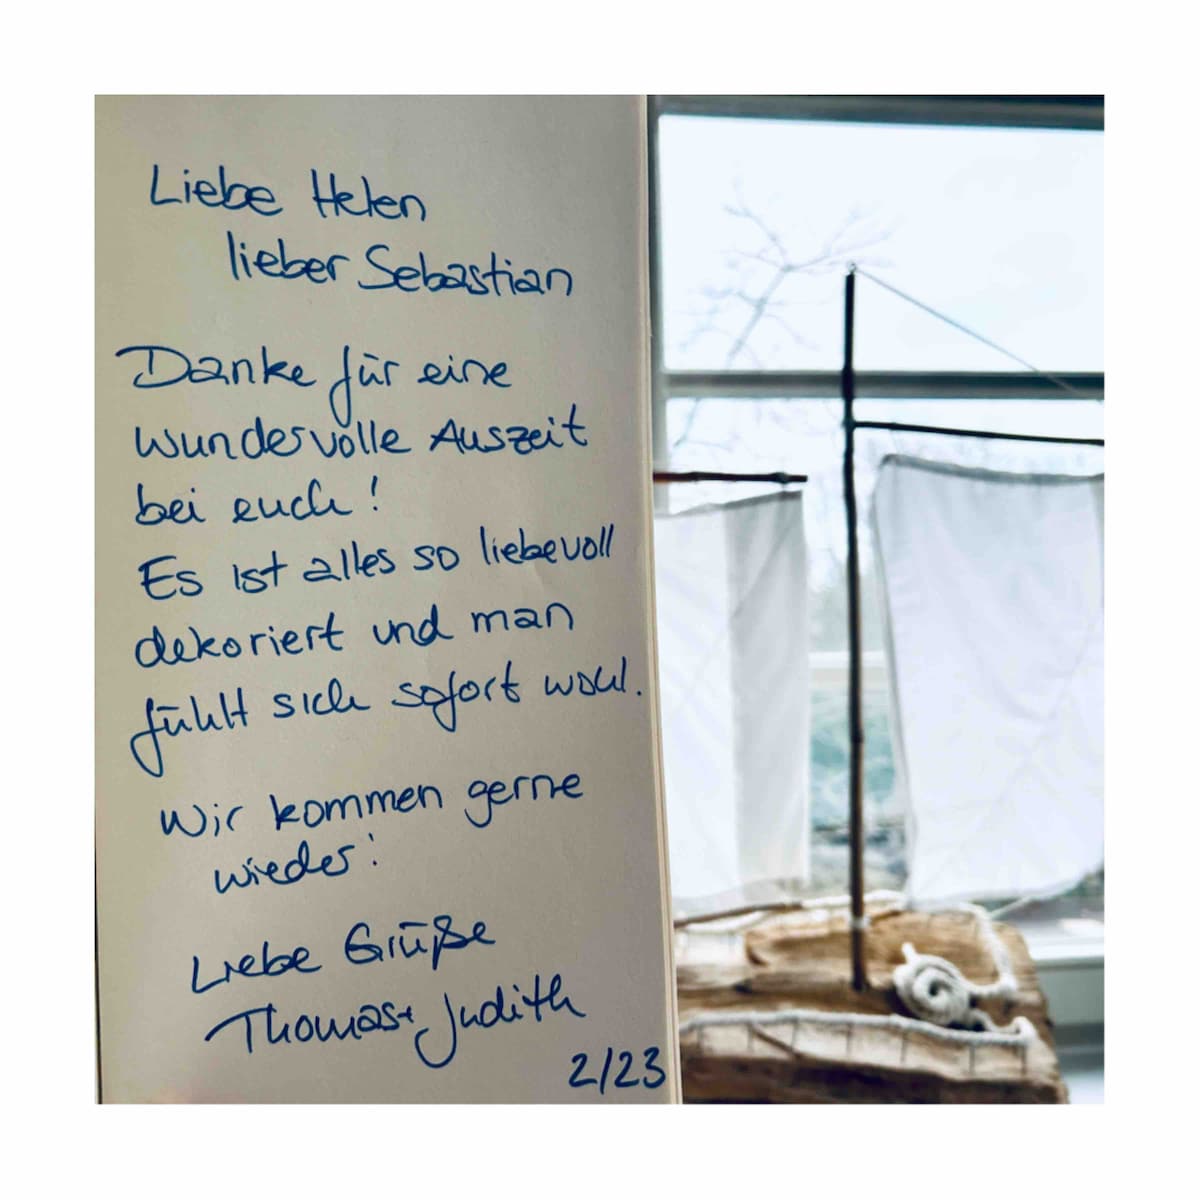 Liebe Helen
lieber Sebastian
Danke für eine
wundervolle Auszeit
bei euch!
Es ist alles so liebevoll
dekoriert und man
fühlt sich sofort wohl.
Wir kommen gerne
wieder!
Liebe Grüße
Thomas + Judith
2/23